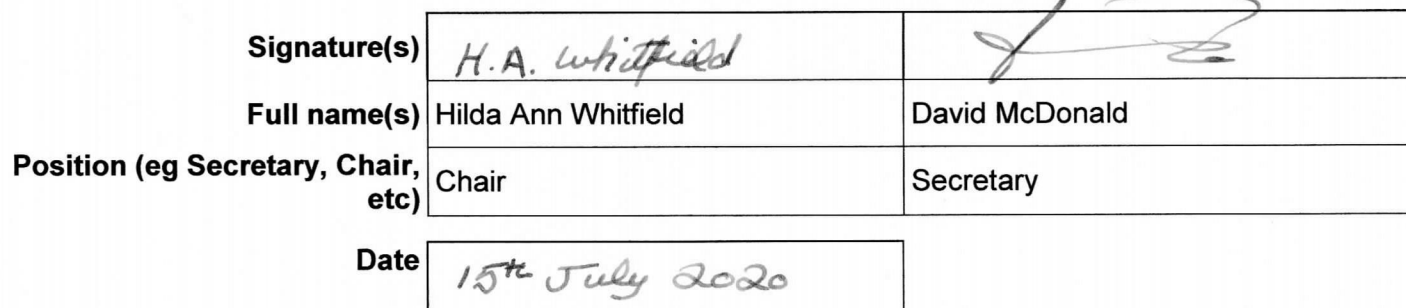 Signature(s) H.A. Whitfield
Full name(s) Hilda Ann Whitfield David McDonald
Position (eg Secretary, Chair, Chair Secretary
etc)
Date 15th July 2020